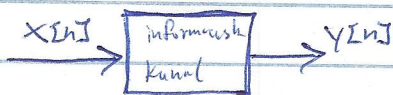 X[n]
informacisk
kanal
Y[n]